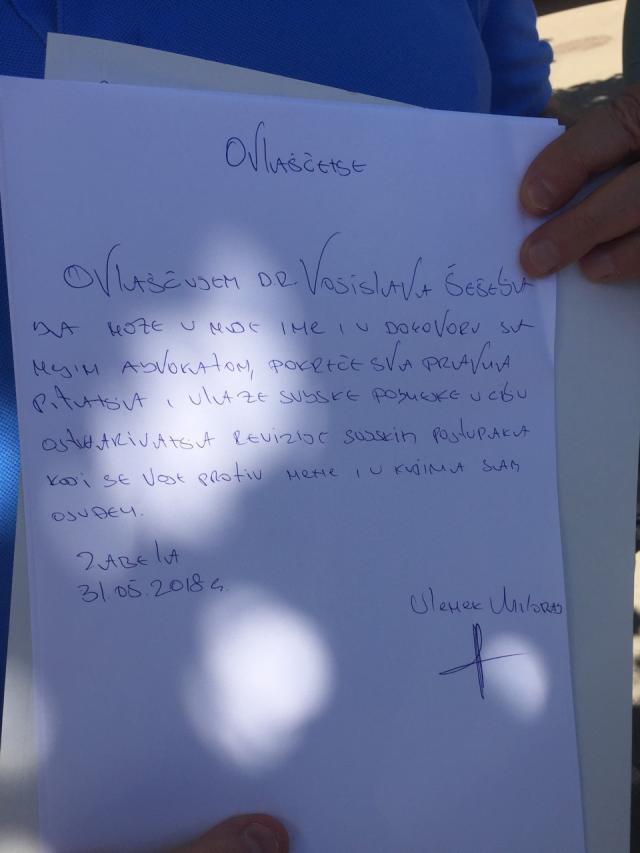 OVLAŠČEЊE
OVLAŠČUJEM DR VOJISLAVA ŠEŠEЉA
DA MOŽE U MOJE IME I U DOGOVORU SA
MOJIM ADVOKATOM, POKREĆE SVA PRAVNA
PITAЊA I ULAŽE SUDSKE PODNESKE U CIЉU
OSTVARIVAЊA REVIZIJE SUDSKIH POSTUPAKA
KOJI SE VODE PROTIV MENE I U KOJIMA SAM
OSUĐEN.
ZABELA
31.05.2018 G.
ULEMEK MILORAD